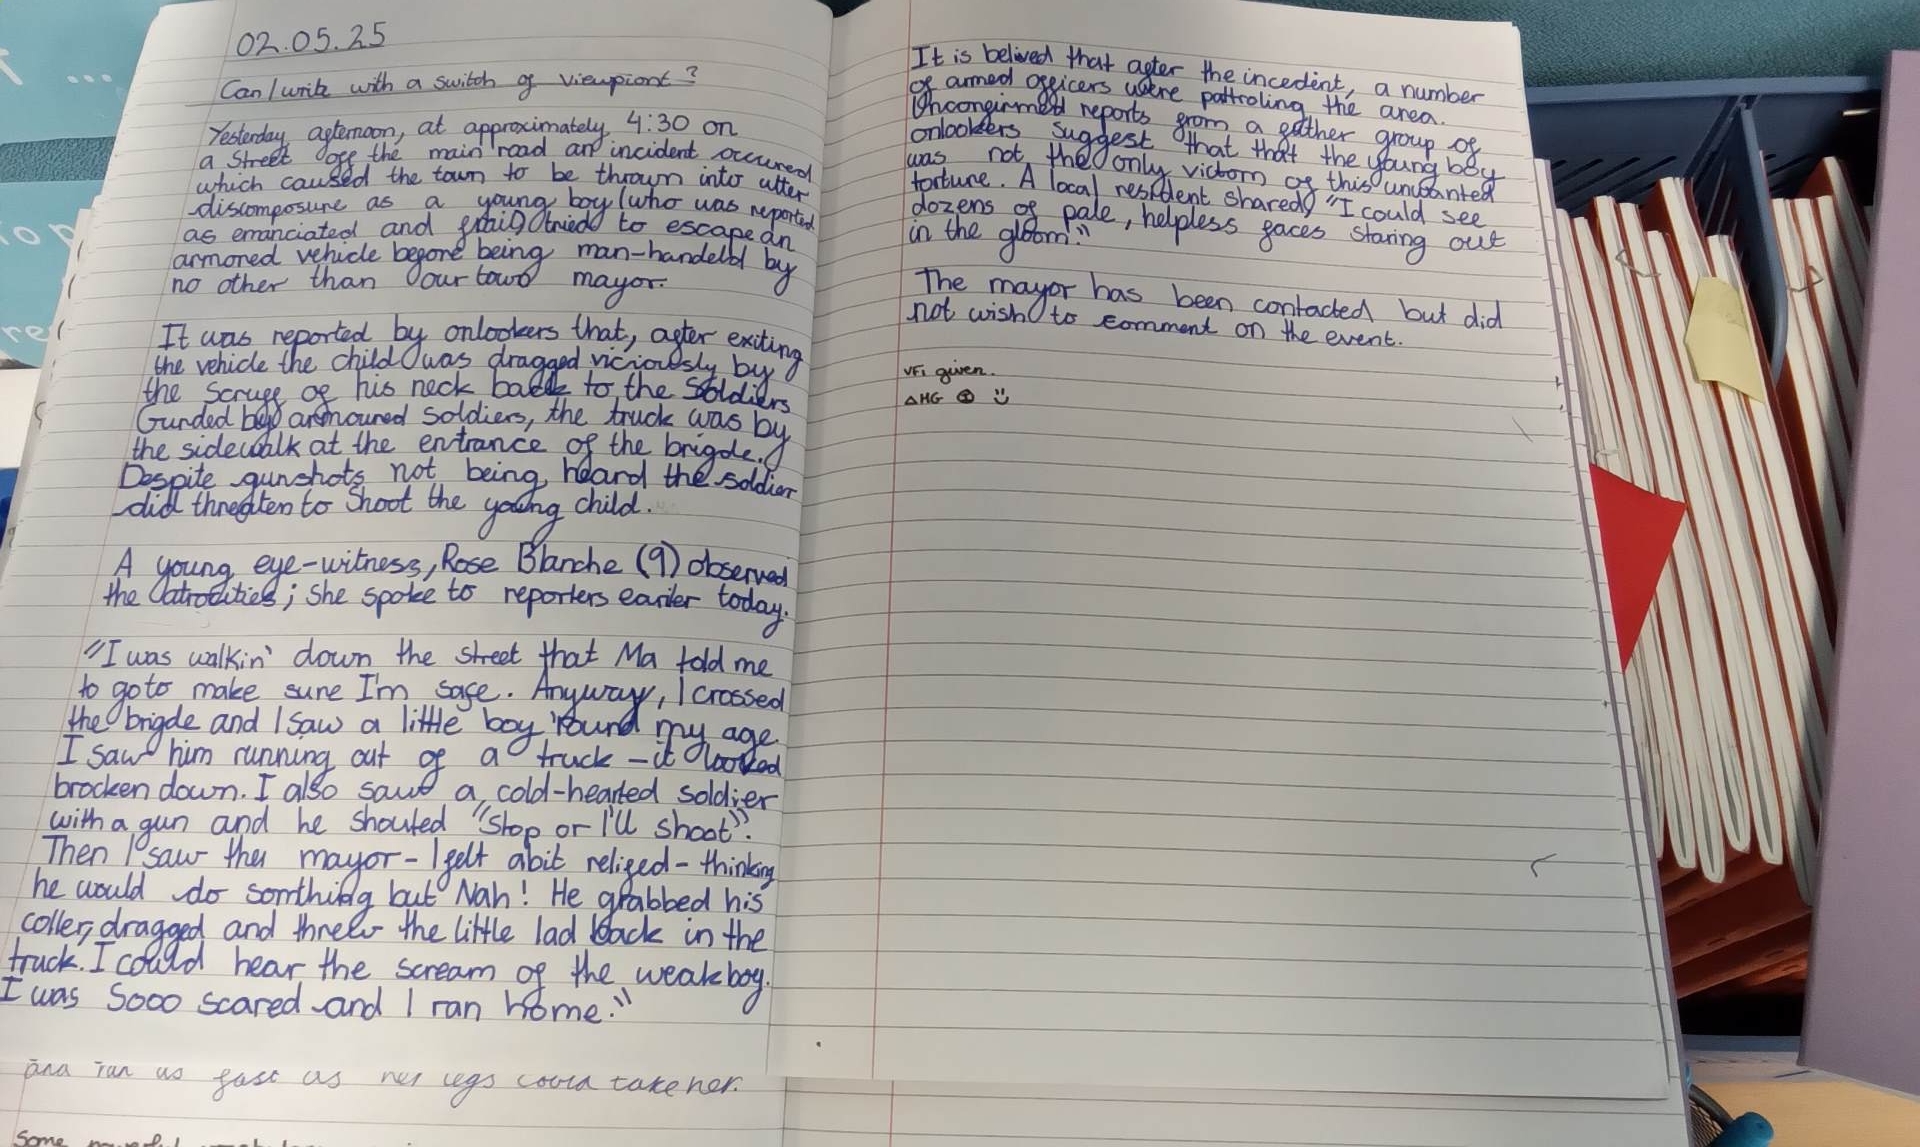 02.05.25
Can I write with a switch of viewpiont?
Yesterday afternoon, at approximately 4:30 on
a Street off the main road an incident occured
which caused the town to be thrown into utter
discomposure as a young boy (who was reported
as emanciated and frail) tried to escape an
armored vehicle before being man-handeld by
no other than our town mayor.
It was reported by onlookers that, after exiting
the vehicle the child was dragged viciously by
the scruff of his neck back to the Soldiers
Gunded by armoured soldiers, the truck was by
the sidewalk at the entrance of the brigde.
Despite gunshots not being heard the soldier
did threaten to shoot the young child.
A young eye-witness, Rose Blanche (9) observed
the atrocities; she spoke to reporters earier today.
"I was walkin' down the street that Ma told me
to go to make sure I'm safe. Anyway, I crossed
the brigde and I saw a little boy 'round my age.
I saw him running out of a truck - it looked
brocken down. I also saw a cold-hearted soldier
with a gun and he shouted "Stop or I'll shoot".
Then I saw the mayor - I felt abit relifed - thinking
he would do somthing but Nah! He grabbed his
coller, dragged and threw the little lad back in the
truck. I could hear the scream of the weak boy.
I was Sooo scared and I ran home."
and ran as fast as her legs could take her.
Some powerful
It is belived that after the incedent, a number
of armed officers were pattroling the area.
Unconfirmed reports from a futher group of
onlookers suggest that that the young boy
was not the only victom of this unwanted
torture. A local resident shared, "I could see
dozens of pale, helpless faces staring out
in the gloom."
The mayor has been contacted but did
not wish to comment on the event.
VFi given.